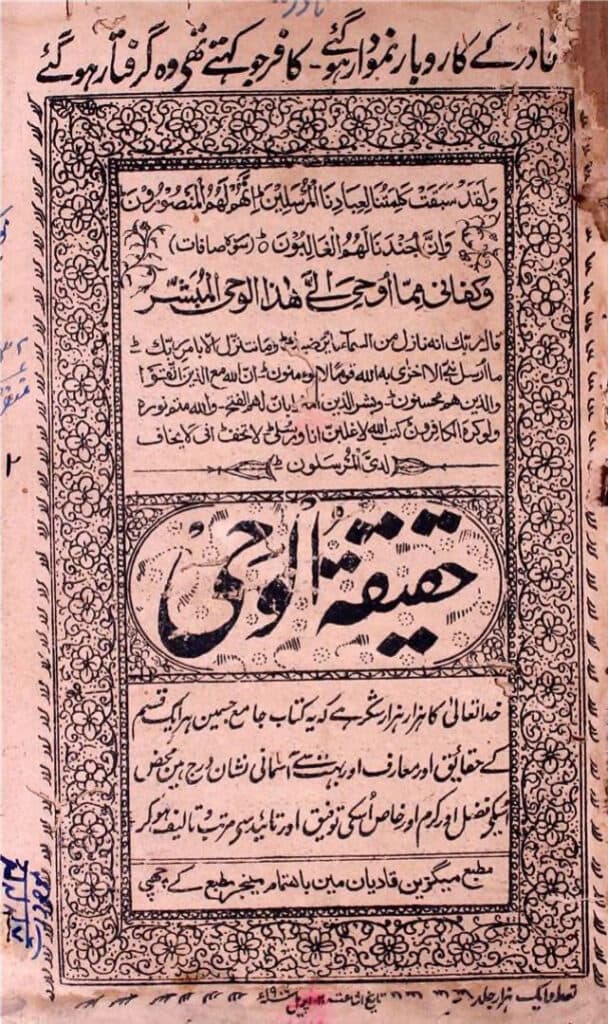 نادر کے کاروبار نمودار ہو گئے - کافر جو کہتے تھے وہ گرفتار ہو گئے
وَلَقَدْ سَبَقَتْ كَلِمَتُنَا لِعِبَادِنَا الْمُرْسَلِيْنَ اِنَّهُمْ لَهُمُ الْمَنْصُوْرُوْنَ
وَاِنَّ جُنْدَنَا لَهُمُ الْغَالِبُوْنَ (سورہ صافات)
وكفانى مما اُوحِىَ الىَّ هٰذا الوحى المُبشّر
قال ربك انه نازل من السماء ما يرضيك وما نتنزل الا بامر ربك
ان الله مع الذين اتقوا
والذين هم محسنون وبشر الذين امنوا بان لهم الفتح والله متم نوره
ولو كره الكافرون كتب الله لاغلبن انا ورسلى لا تخف انى لا يخاف
لدىّ المُرسلون
حقیقۃ الوحی
خدا تعالیٰ کا ہزار ہزار شکر ہے کہ یہ کتاب جامع جسمین ہر ایک قسم
کے حقائق اور معارف اور بہت سے آسمانی نشان درج ہین محض
اُسکے فضل اور کرم اور خاص اُسکی توفیق اور تائید سے مرتب و تالیف ہو کر
مطبع میگزین قادیان مین باہتمام مینجر مطبع کے چھپی
تعداد ایک ہزار جلد تاریخ اشاعت